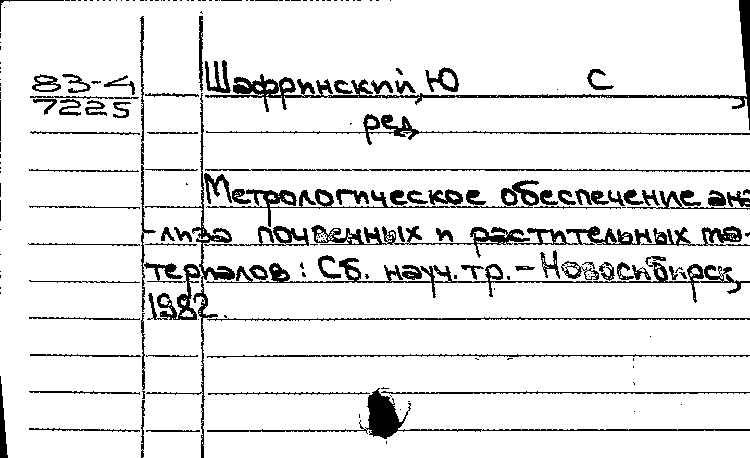 83-4
7225
Шафринский, Ю С
ред.
Метрологическое обеспечение ана
-лиза почвенных и растительных ма-
териалов: Сб. науч. тр. - Новосибирск,
1982.